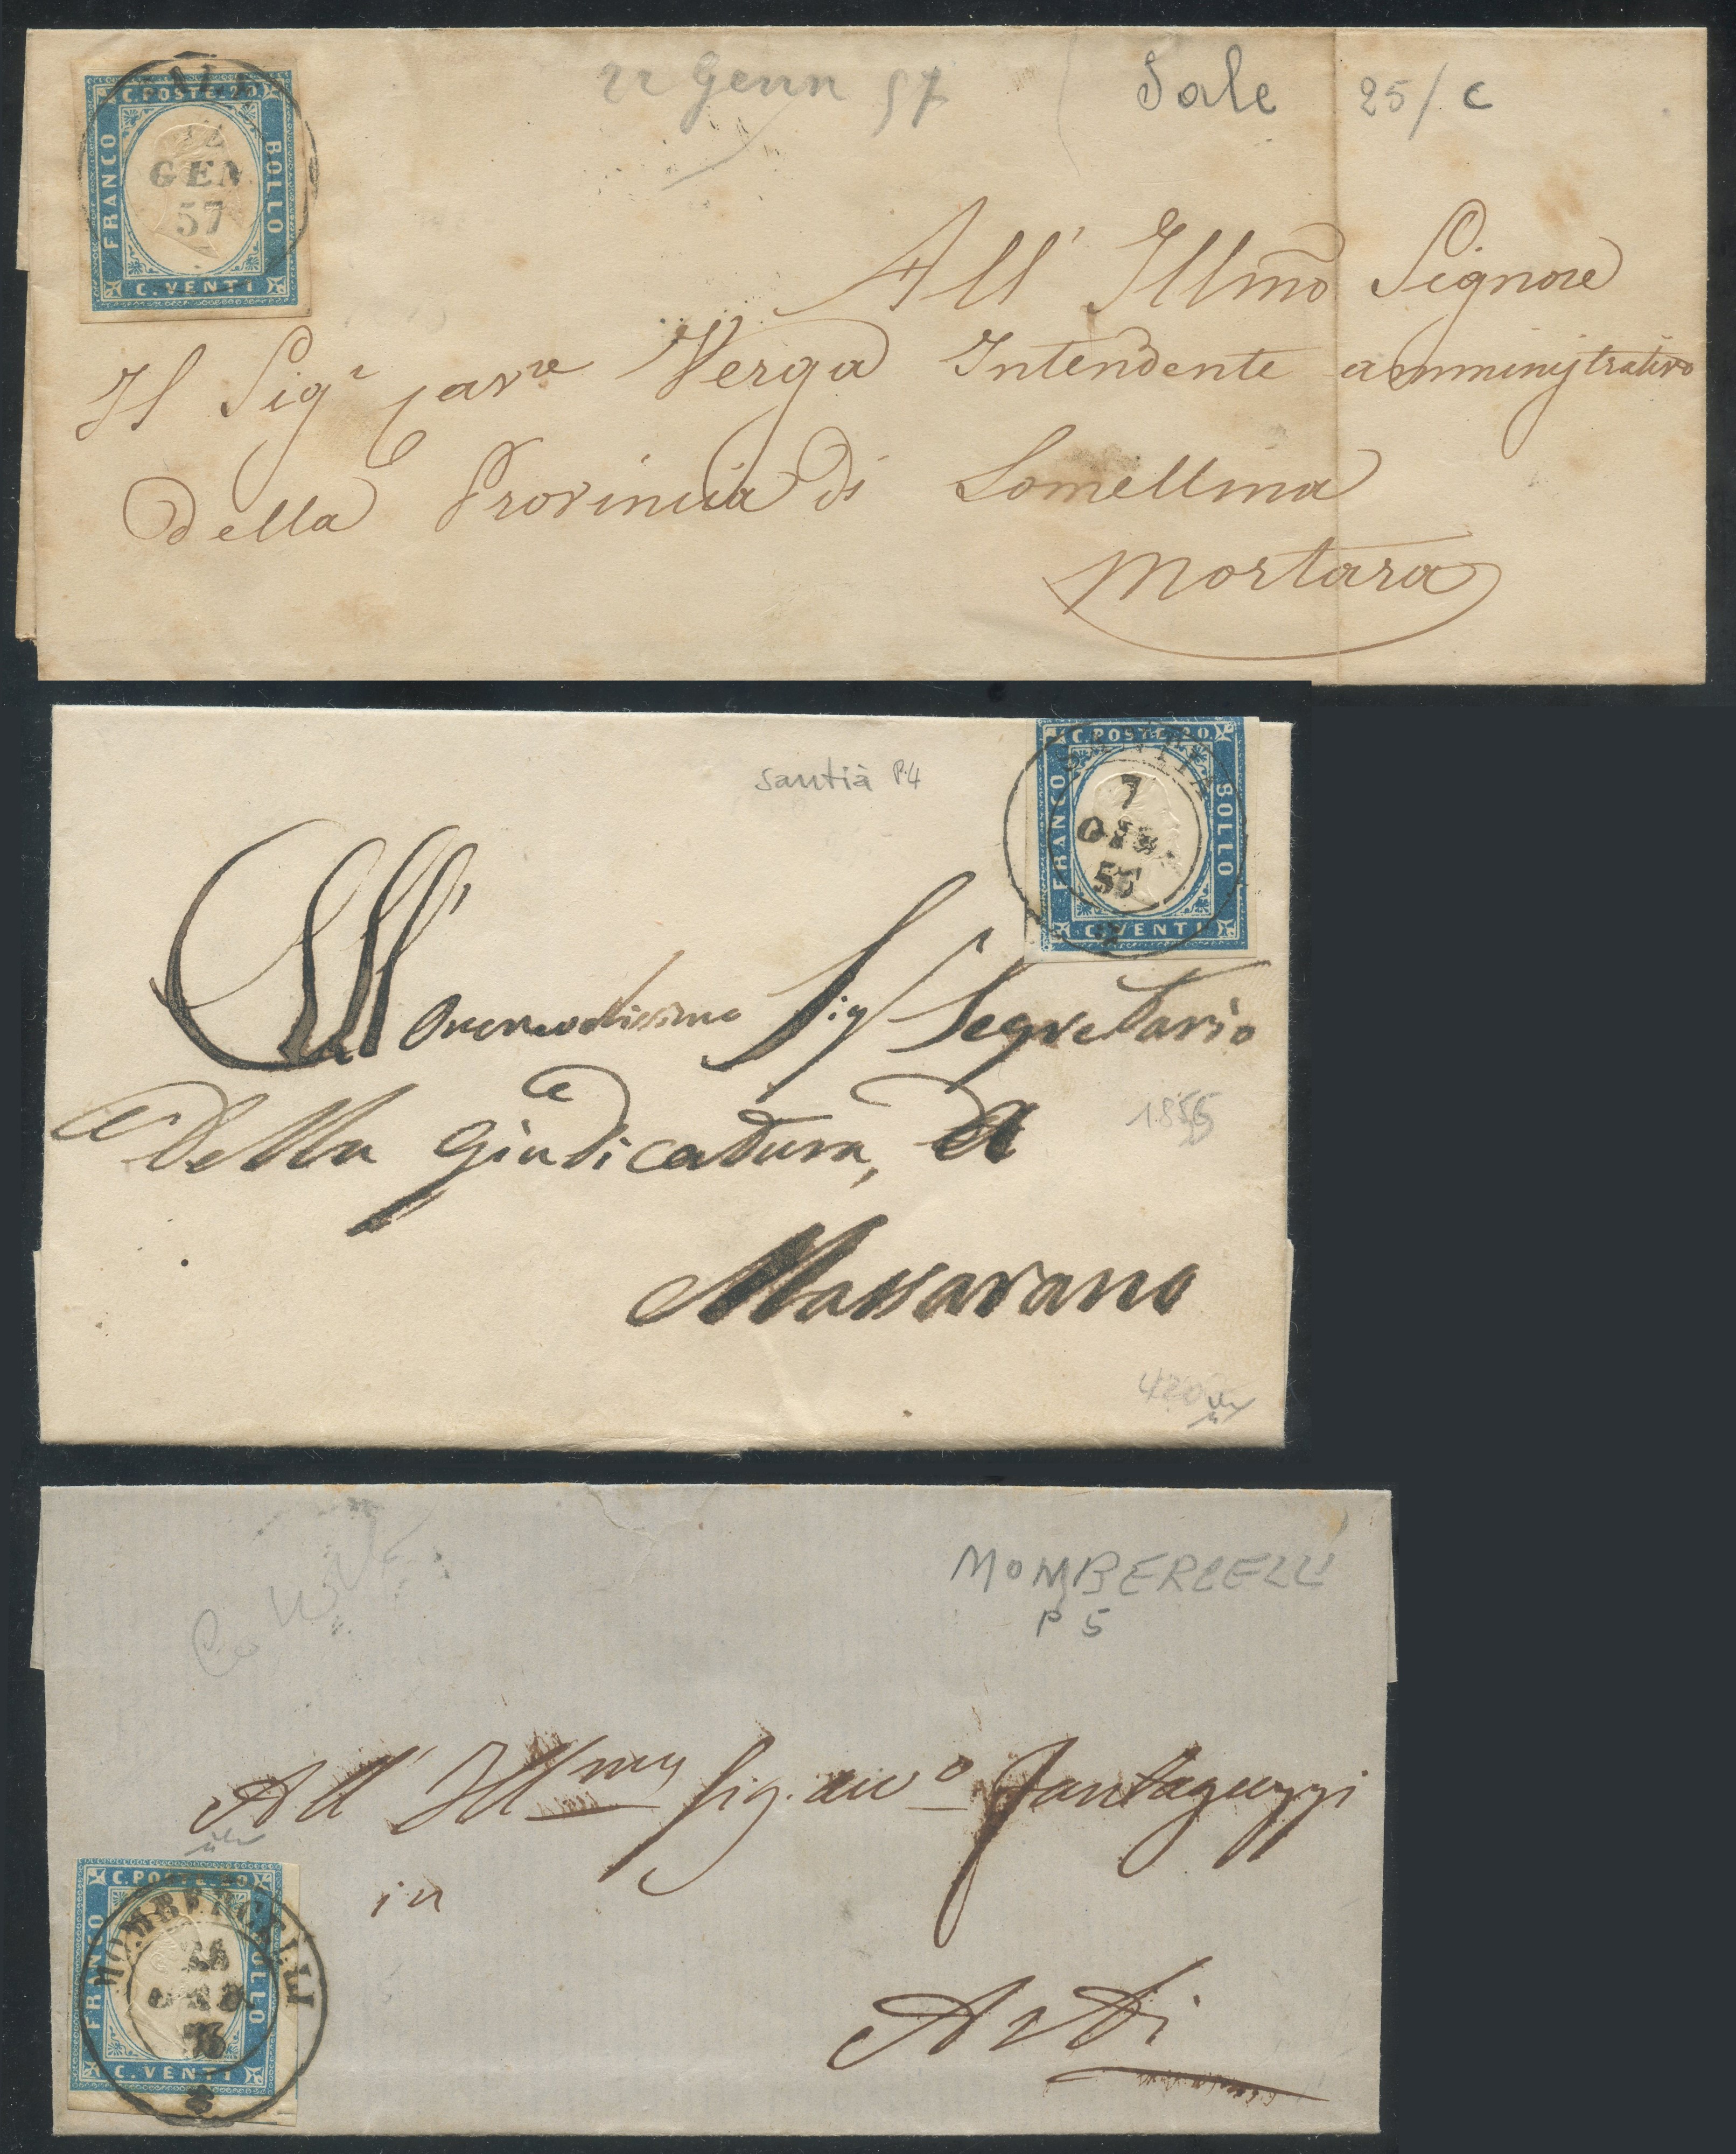 22 Genn 57 Sale 25/c
C. POSTE 20
FRANCO
BOLLO
C. VENTI
GEN
57
All' Illmo Signore
Il Sigr Cavre Verga Intendente amministrativo
della Provincia di Lomellina
Mortara
Santià P.4
C. POSTE 20.
FRANCO
BOLLO
C. VENTI
7
56
2
All' Onorevolissimo Sig Segretario
Della Giudicatura, di
Massarano
420
MOMBERCELLI
P 5
All' Illmo Sig. avvo Fantaguzzi
in
Asti
C. POSTE 20
FRANCO
BOLLO
C. VENTI
MOMBERCELLI